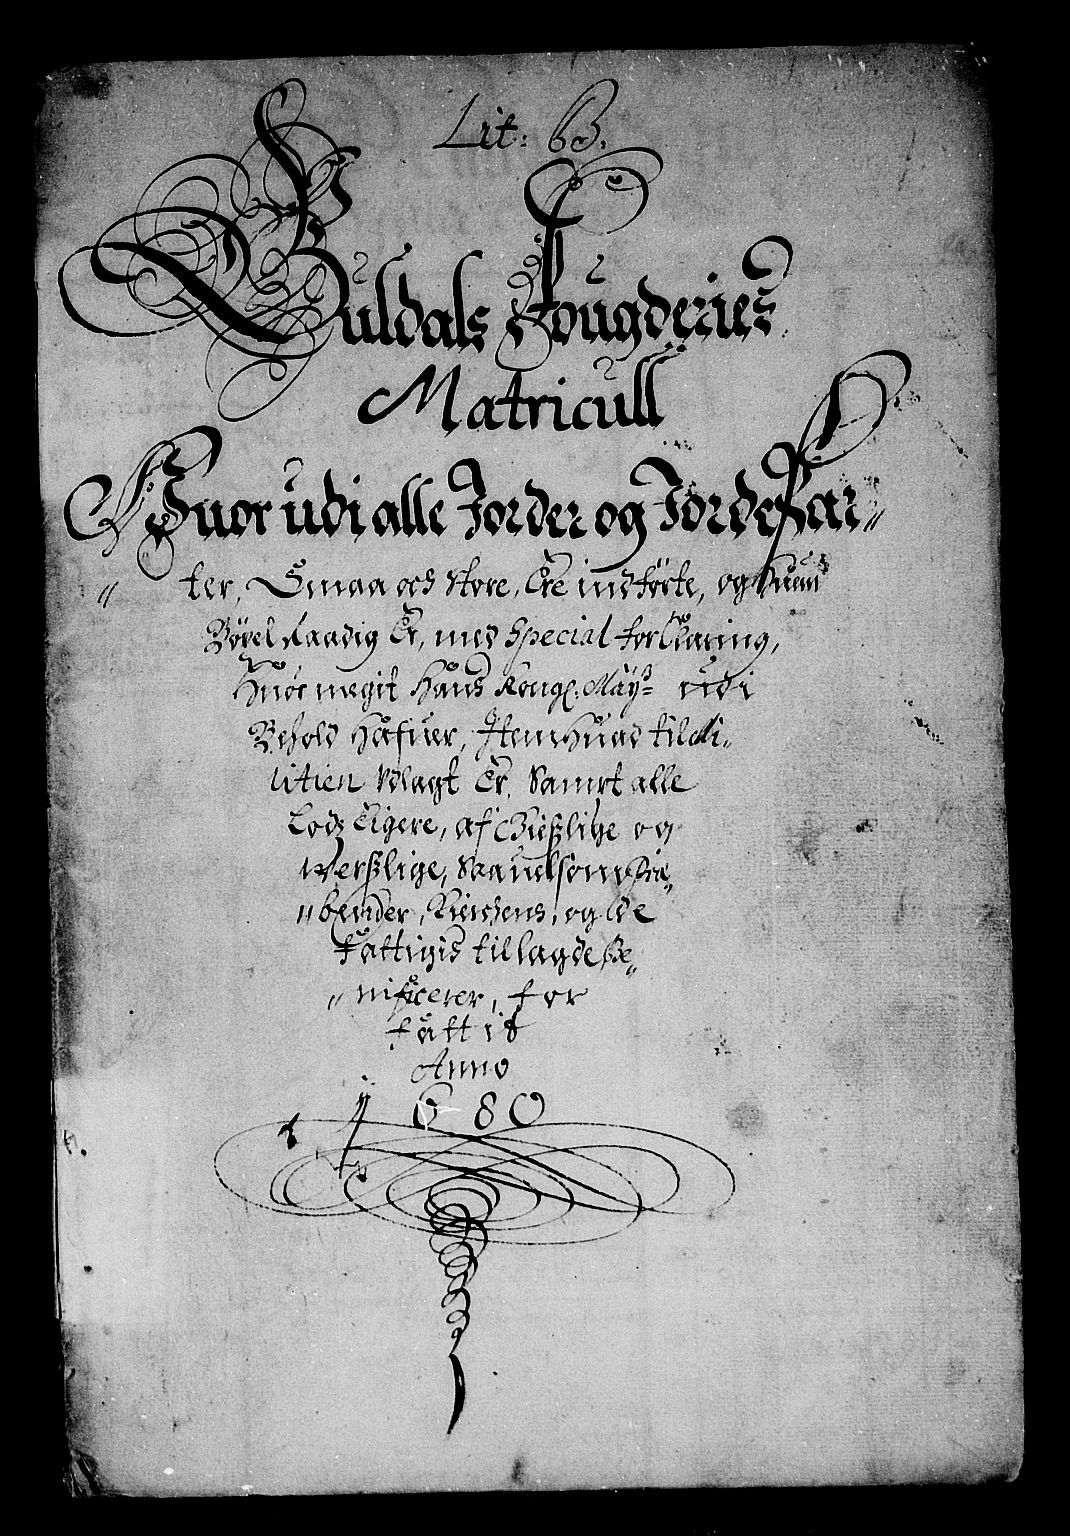 Lit: B.
Guldals Fougderies
Matricull
Huor udi alle Jorder og Jordepar„
„ter, Smaa och store, Ere indførte, og huem
Bøxel Raadig Er, med Special forklaring,
Huor megit Hans Kongl: Mayts udi
Behold hafuer, Item Huad til Mi„
litien Udlagt Er, Sampt alle
Lods Eigere, af Gieistlige og
Verslige, Saauelsom Præ„
„bender, Kirchens, og de
Fattigis tillagde Be„
„nificerer, for
fattit
Anno
1680